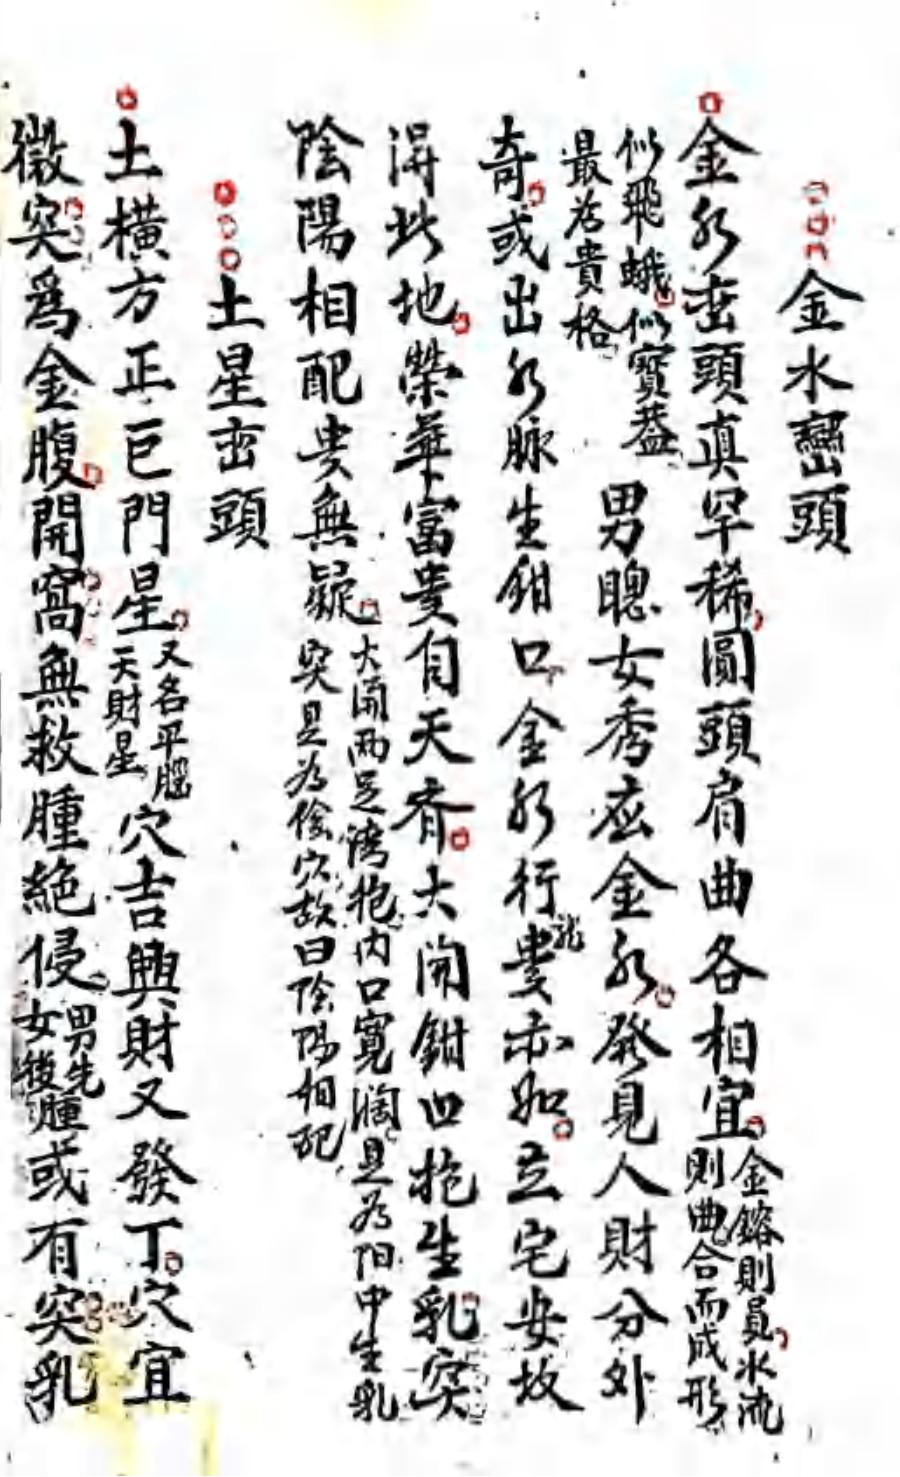 金水巒頭
金水峦頭真罕稀圓頭肩曲各相宜金鎔則員水流則曲合而成形
似飛蛾似寳盖最为貴格男聰女秀应金水發見人財分外
奇或出水脉生鉗口金水行龍貴亦如立宅安坟
淂此地榮華富贵自天齊大開鉗口抱生乳突
陰陽相配贵無疑大開两足湾抱内口寬濶是为阳中生乳突是为陰穴故曰陰陽相配
土星峦頭
土橫方正巨門星又名平腦天財星穴吉興財又發丁穴宜
微突爲金腹開窩無救腫絕侵男先女後腫或有突乳